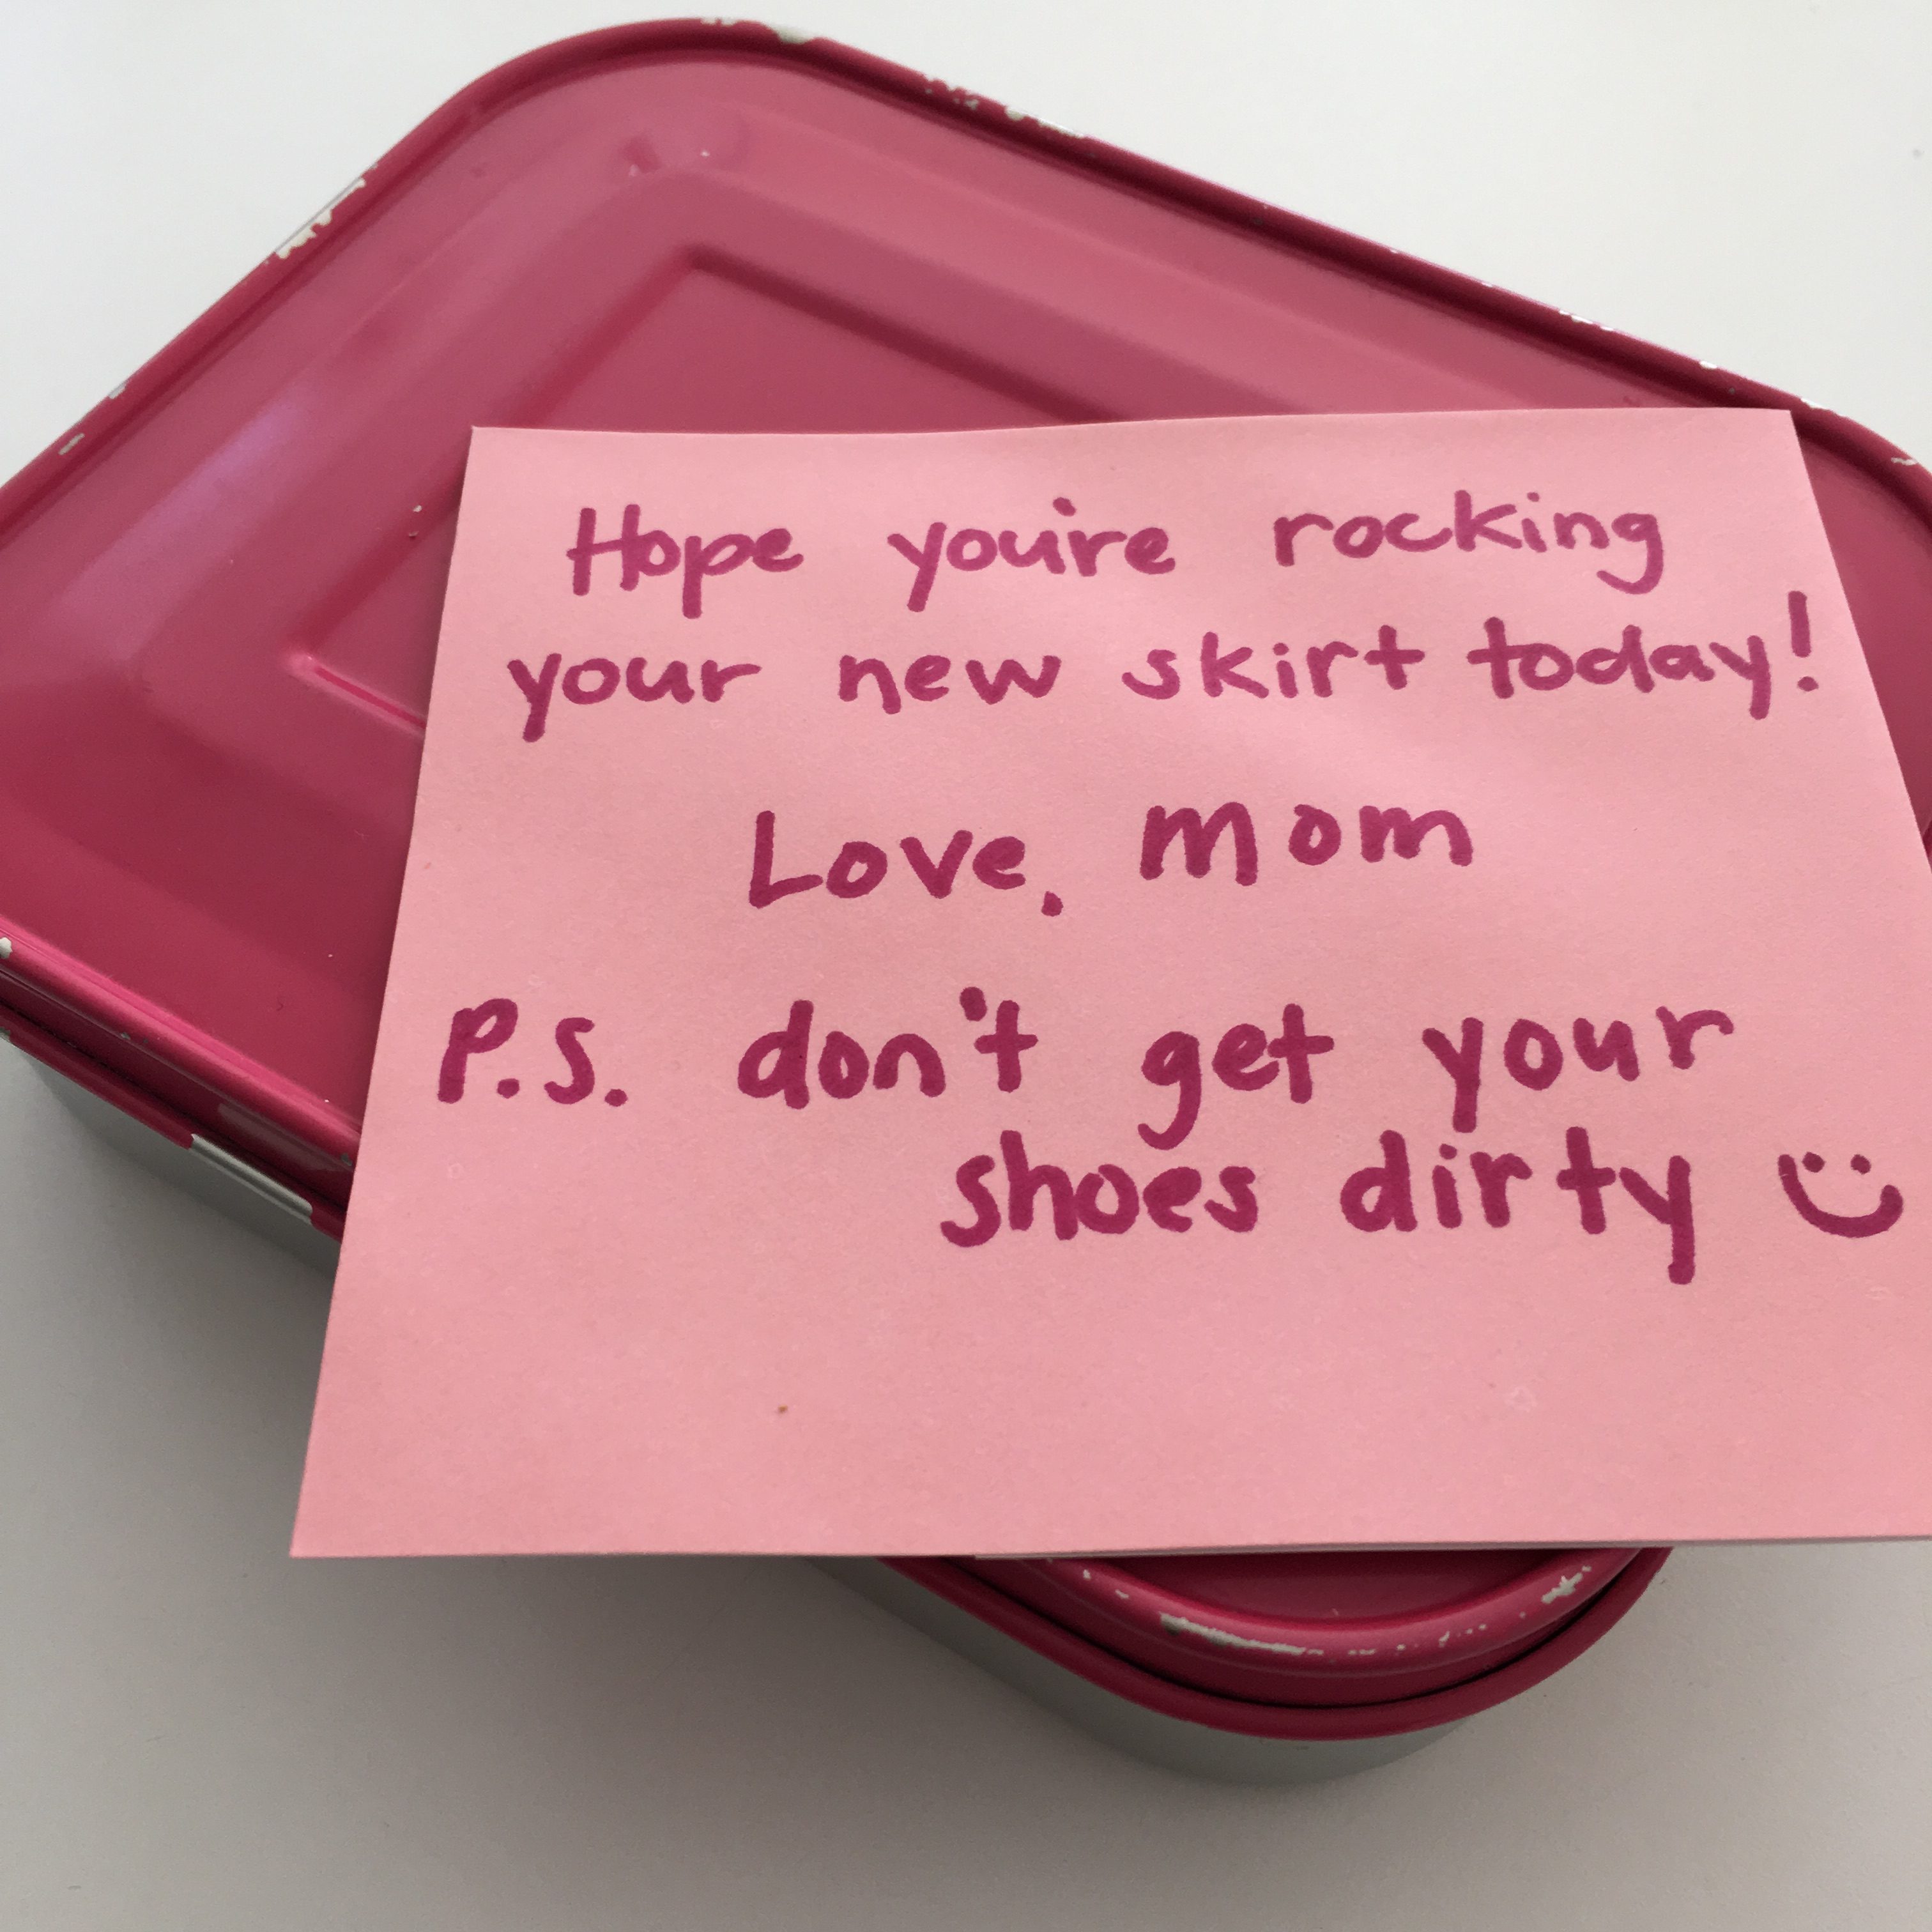 Hope you're rocking
your new skirt today!
Love, Mom
P.S. don't get your
shoes dirty